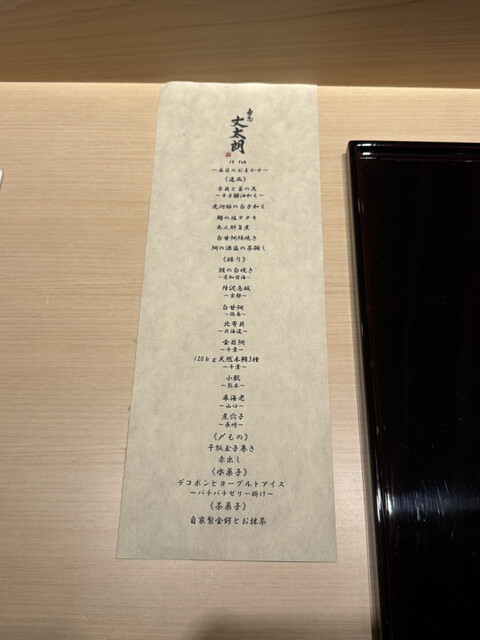 丈太朗
14 Feb
～本日のおまかせ～
《逸品》
赤貝と菜の花
～辛子醤油和え～
虎河豚の白子和え
鰆の塩タタキ
あん肝旨煮
白甘鯛鱗焼き
鯛の酒盗の茶碗し
《握り》
鰻の白焼き
～愛知碧海～
障泥烏賊
～京都～
白甘鯛
～徳島～
北寄貝
～北海道～
金目鯛
～千葉～
120kg天然本鮪3種
～千葉～
小肌
～熊本～
車海老
～山口～
煮穴子
～長崎～
《〆もの》
干瓢玉子巻き
赤出し
《水菓子》
デコポンとヨーグルトアイス
～パチパチゼリー掛け～
《茶菓子》
自家製金鍔とお抹茶